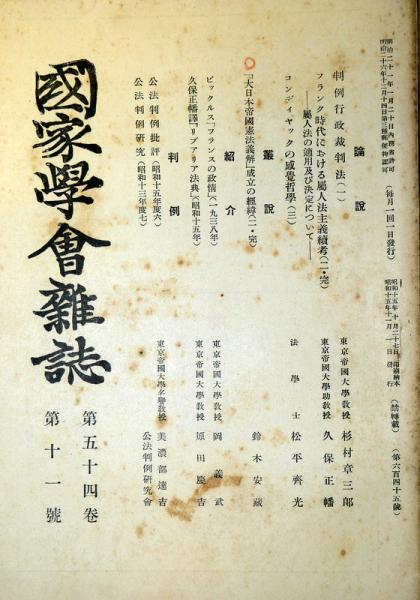 明治二十一年一月二十日內務省許可
明治二十六年十二月十四日第三種郵便物認可
(每月一回一日發行)
昭和十五年十月二十七日印刷納本
昭和十五年十一月一日發行
(禁轉載)
(第六百四十五號)
論說
判例行政裁判法(一)
東京帝國大學教授 杉村章三郎
フランク時代における屬人法主義續考(二・完)
――屬人法の適用及び決定について――
東京帝國大學助教授 久保正幡
コンディヤックの感覺哲學(三)
法學士 松平齊光
叢說
「大日本帝國憲法義解」成立の經緯(二・完)
鈴木安藏
紹介
ピックルス「フランスの政情」(一九三八年)
東京帝國大學教授 岡義武
久保正幡譯「リブアリア法典」(昭和十五年)
東京帝國大學教授 原田慶吉
判例
公法判例批評(昭和十五年度六)
東京帝國大學名譽教授 美濃部達吉
公法判例研究(昭和十三年度七)
公法判例研究會
國家學會雜誌
第五十四卷
第十一號